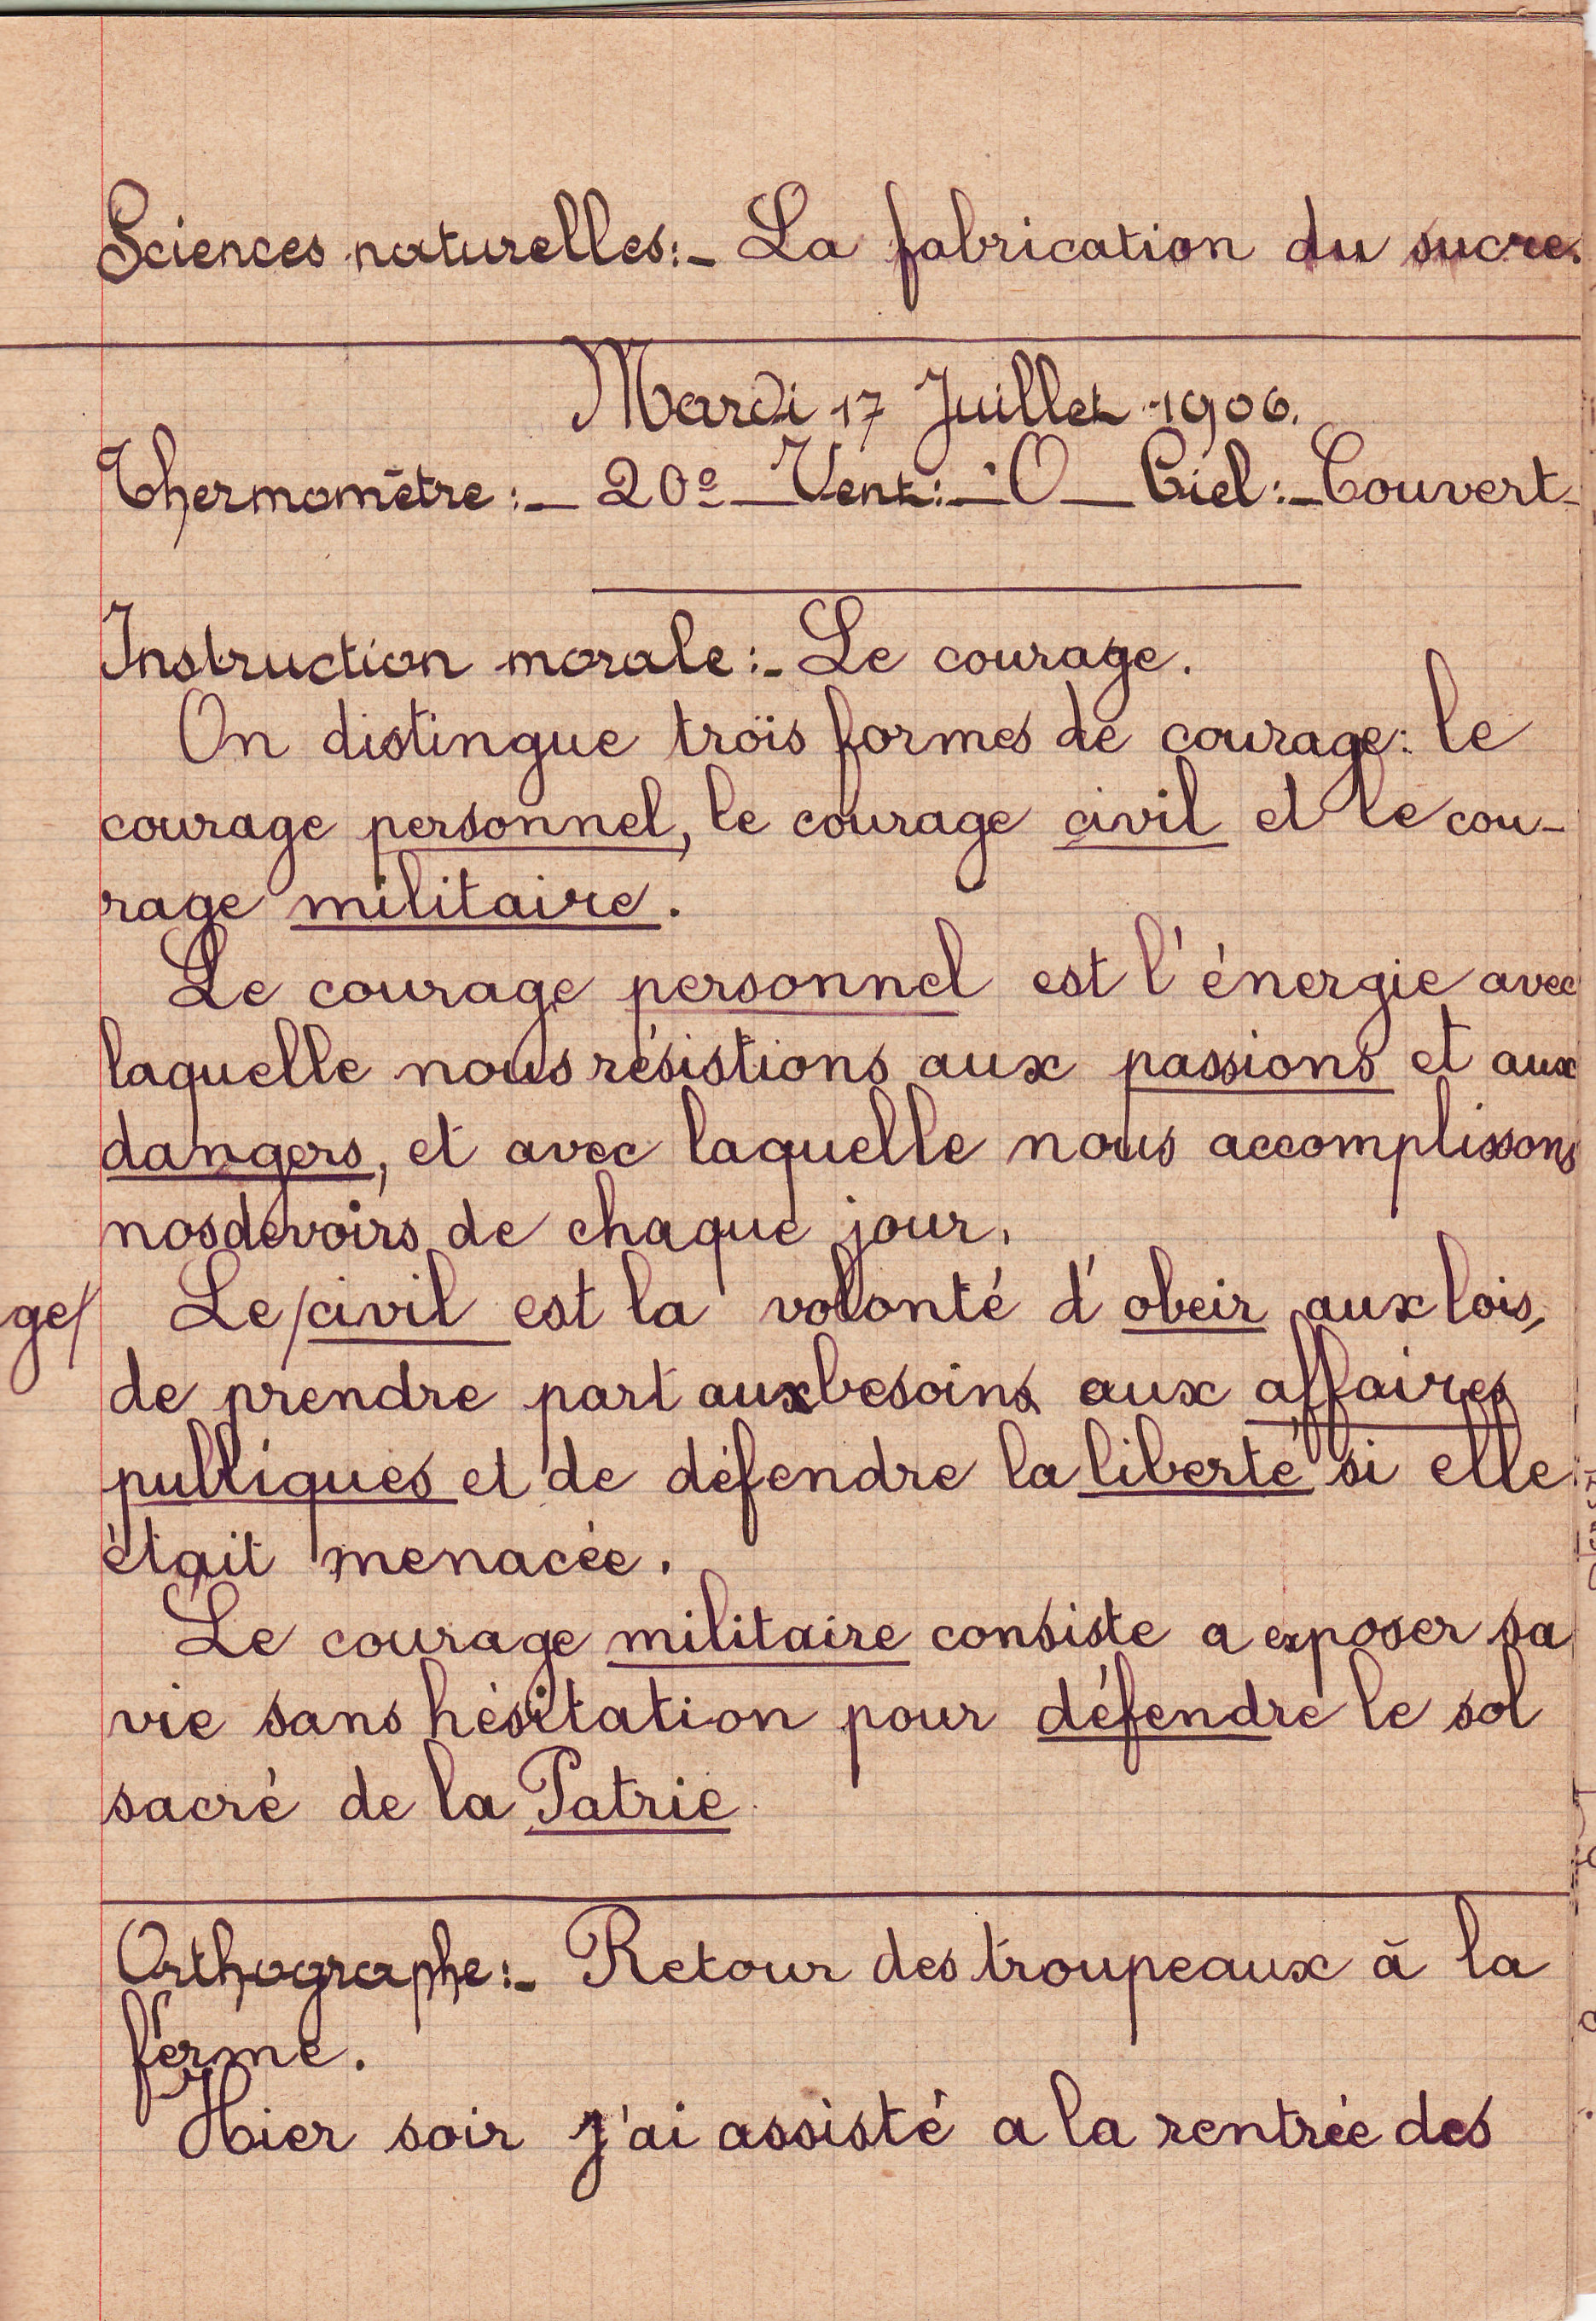 Sciences naturelles:- La fabrication du sucre.
Mardi 17 Juillet 1906.
Thermomètre:- 20° - Vent:- O - Ciel:- Couvert-
Instruction morale:- Le courage.
On distingue trois formes de courage: le
courage personnel, le courage civil et le cou-
rage militaire.
Le courage personnel est l'énergie avec
laquelle nous résistions aux passions et aux
dangers, et avec laquelle nous accomplissons
nos devoirs de chaque jour.
ge/ Le/civil est la volonté d'obeir aux lois,
de prendre part aux besoins aux affaires
publiques et de défendre la liberté si elle
était menacée.
Le courage militaire consiste a exposer sa
vie sans hésitation pour défendre le sol
sacré de la Patrie.
Orthographe:- Retour des troupeaux à la
ferme.
Hier soir j'ai assisté a la rentrée des